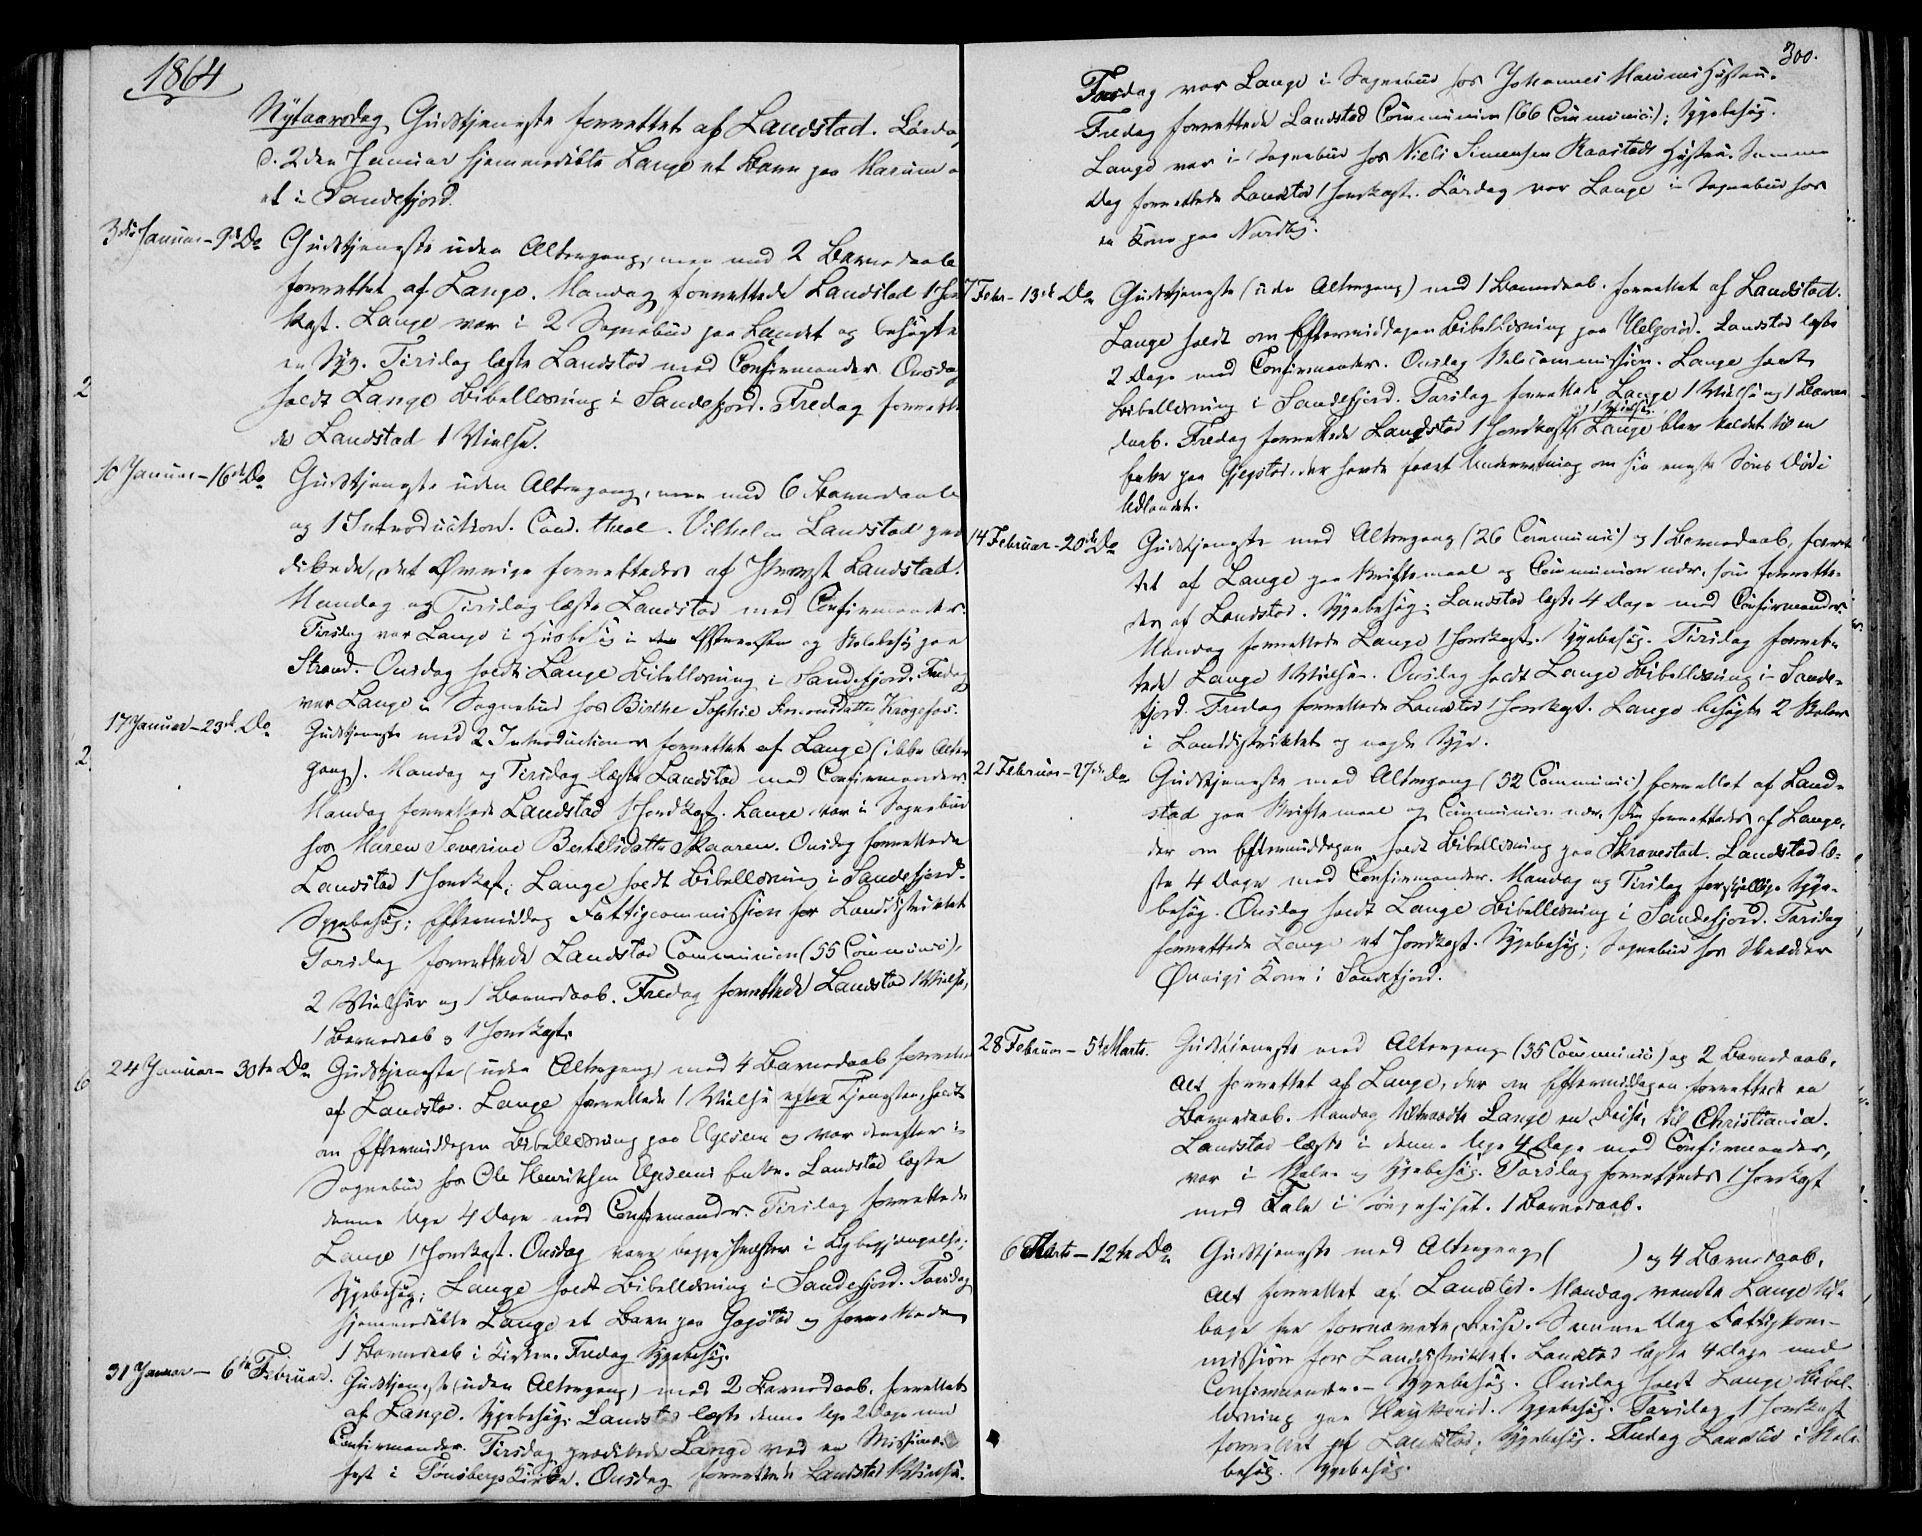 1864
Nytaarsdag Gudstjeneste forrettet af Landstad. Lørda
d. 2den Januar hjemmedøbte Lange et Barn paa
et i Sandefjord.
3die Januar – 9de Do
Gudstjeneste uden Altergang, men med 2 Barnedaab
forrettet af Lange. Mandag forrettede Landstad 1 Jord
kast. Lange var i 2 Sognebud paa Landet og besøgte
en Syg. Tirsdag læste Landstad med Confirmander. Onsdag
holdt Lange Bibellæsning i Sandefjord. Fredag forrette
de Landstad 1 Vielse.
10 Januar – 16de Do
Gudstjeneste uden Altergang, men med 6 Barnedaab
og 1 Introduction. Cand. theol. Vilhelm Landstad præ
dikede, det Øvrige forrettedes af Provst Landstad.
Mandag og Tirsdag læste Landstad med Confirmander.
Tirsdag var Lange i Husbesøg i og Skolebesøg paa
Strand. Onsdag holdt Lange Bibellæsning i Sandefjord. Fredag
var Lange i Sognebud hos Birthe Sophie Simensdatter
17 Januar – 23de Do
Gudstjeneste med 2 Introductioner forrettet af Lange (ikke Alter
gang). Mandag og Tirsdag læste Landstad med Confirmander.
Mandag forrettede Landstad 1 Jordkast. Lange var i Sognebud
hos Maren Severine Bertelsdatter Skaaren. Onsdag forrettede
Landstad 1 Jordkast; Lange holdt Bibellæsning i Sandefjord.
Sygebesøg; Eftermiddag Fattigcommission for Landdistriktet
Torsdag forrettede Landstad Communion (55 Communic.),
2 Vielser og 1 Barnedaab. Fredag forrettede Landstad 1 Vielse,
1 Barnedaab og 1 Jordkast.
24 Januar – 30te Do
Gudstjeneste (uden Altergang) med 4 Barnedaab forrettet
af Landstad. Lange forrettede 1 Vielse efter Tjenesten, holdt
om Eftermiddagen Bibellæsning paa Elgesem og var derefter i
Sognebud hos Ole Henriksen Elgesems Enke. Landstad læste
denne Uge 4 Dage med Confirmander. Tirsdag forrettede
Lange 1 Jordkast. Onsdag vare begge Præster i Ligbegjængelse;
Sygebesøg; Lange holdt Bibellæsning i Sandefjord. Torsdag
hjemmedøbte Lange et Barn paa Gogstad og forrettede
1 Barnedaab i Kirken. Fredag Sygebesøg.
31 Januar – 6te Februar.
Gudstjeneste (uden Altergang) med 2 Barnedaab, forrettet
af Lange. Sygebesøg; Landstad læste denne Uge 2 Dage med
Confirmander. Tirsdag prædikede Lange ved en Missions
fest i Tønsbergs Kirke. Onsdag forrettede Landstad 1 Vielse.
300.
Torsdag var Lange i Sognebud hos Johannes Hustru.
Fredag forrettede Landstad Communion (66 Communic.); Sygebesøg.
Lange var i Sognebud hos Niels Simensen Raastads Hustru. Samme
Dag forrettede Landstad 1 Jordkast. Lørdag var Lange i Sognebud hos
en Kone paa Nordby.
7 Febr. – 13de Do
Gudstjeneste (uden Altergang) med 1 Barnedaab. forrettet af Landstad.
Lange holdt om Eftermiddagen Bibellæsning paa Helgerød. Landstad læste
2 Dage med Confirmander. Onsdag Skolecommission. Lange holdt
Bibellæsning i Sandefjord. Torsdag forrettede Lange 1 Vielse og 1 Barne
daab. Fredag forrettede Landstad 1 Jordkast og 1 Vielse. Lange blev kaldet til en
Enke paa Gjegstad, der havde faaet Underretning om sin eneste Søns Død i
Udlandet.
14 Februar – 20de Do
Gudstjeneste med Altergang (26 Communic.) og 1 Barnedaab, forret
tet af Lange paa Skriftemaal og Communion nær, som forrette
des af Landstad. Sygebesøg; Landstad læste 4 Dage med Confirmander.
Mandag forrettede Lange 1 Jordkast. Sygebesøg. Tirsdag forret-
tede Lange 1 Vielse. Onsdag holdt Lange Bibellæsning i Sande-
fjord. Fredag forrettede Landstad 1 Jordkast. Lange besøgte 2 Skoler
i Landdistriktet og nogle Syge.
21 Februar – 27de Do
Gudstjeneste med Altergang (52 Communic.) forrettet af Land-
stad paa Skriftemaal og Communion nær, som forrettedes af Lange,
der om Eftermiddagen holdt Bibellæsning paa Skravestad. Landstad læ-
ste 4 Dage med Confirmander. Mandag og Tirsdag forskjellige Syge-
besøg. Onsdag holdt Lange Bibellæsning i Sandefjord. Torsdag
forrettede Lange et Jordkast. Sygebesøg; Sognebud hos Skrædder
Kone i Sandefjord.
28 Februar – 5te Marts.
Gudstjeneste med Altergang (35 Communic.) og 2 Barnedaab,
Alt forrettet af Lange, der om Eftermiddagen forrettede en
Barnedaab. Mandag tiltraadte Lange en Reise til Christiania.
Landstad læste i denne Uge 4 Dage med Confirmander,
var i Skole og Sygebesøg. Torsdag forrettedes 1 Jordkast
med Tale i Sørgehuset. 1 Barnedaab.
6 Marts – 12te Do
Gudstjeneste med Altergang ( ) og 4 Barnedaab,
Alt forrettet af Landstad. Mandag vendte Lange til-
bage fra fornævnte Reise. Samme Dag Fattigkom-
mission for Landdistriktet. Landstad læste 4 Dage med
Confirmander. – Sygebesøg. Onsdag holdt Lange Bibel-
læsning paa Sygebesøg. Torsdag 1 Jordkast
forrettet af Landstad; Sygebesøg. Fredag Landstad i Skole
besøg. Sygebesøg.